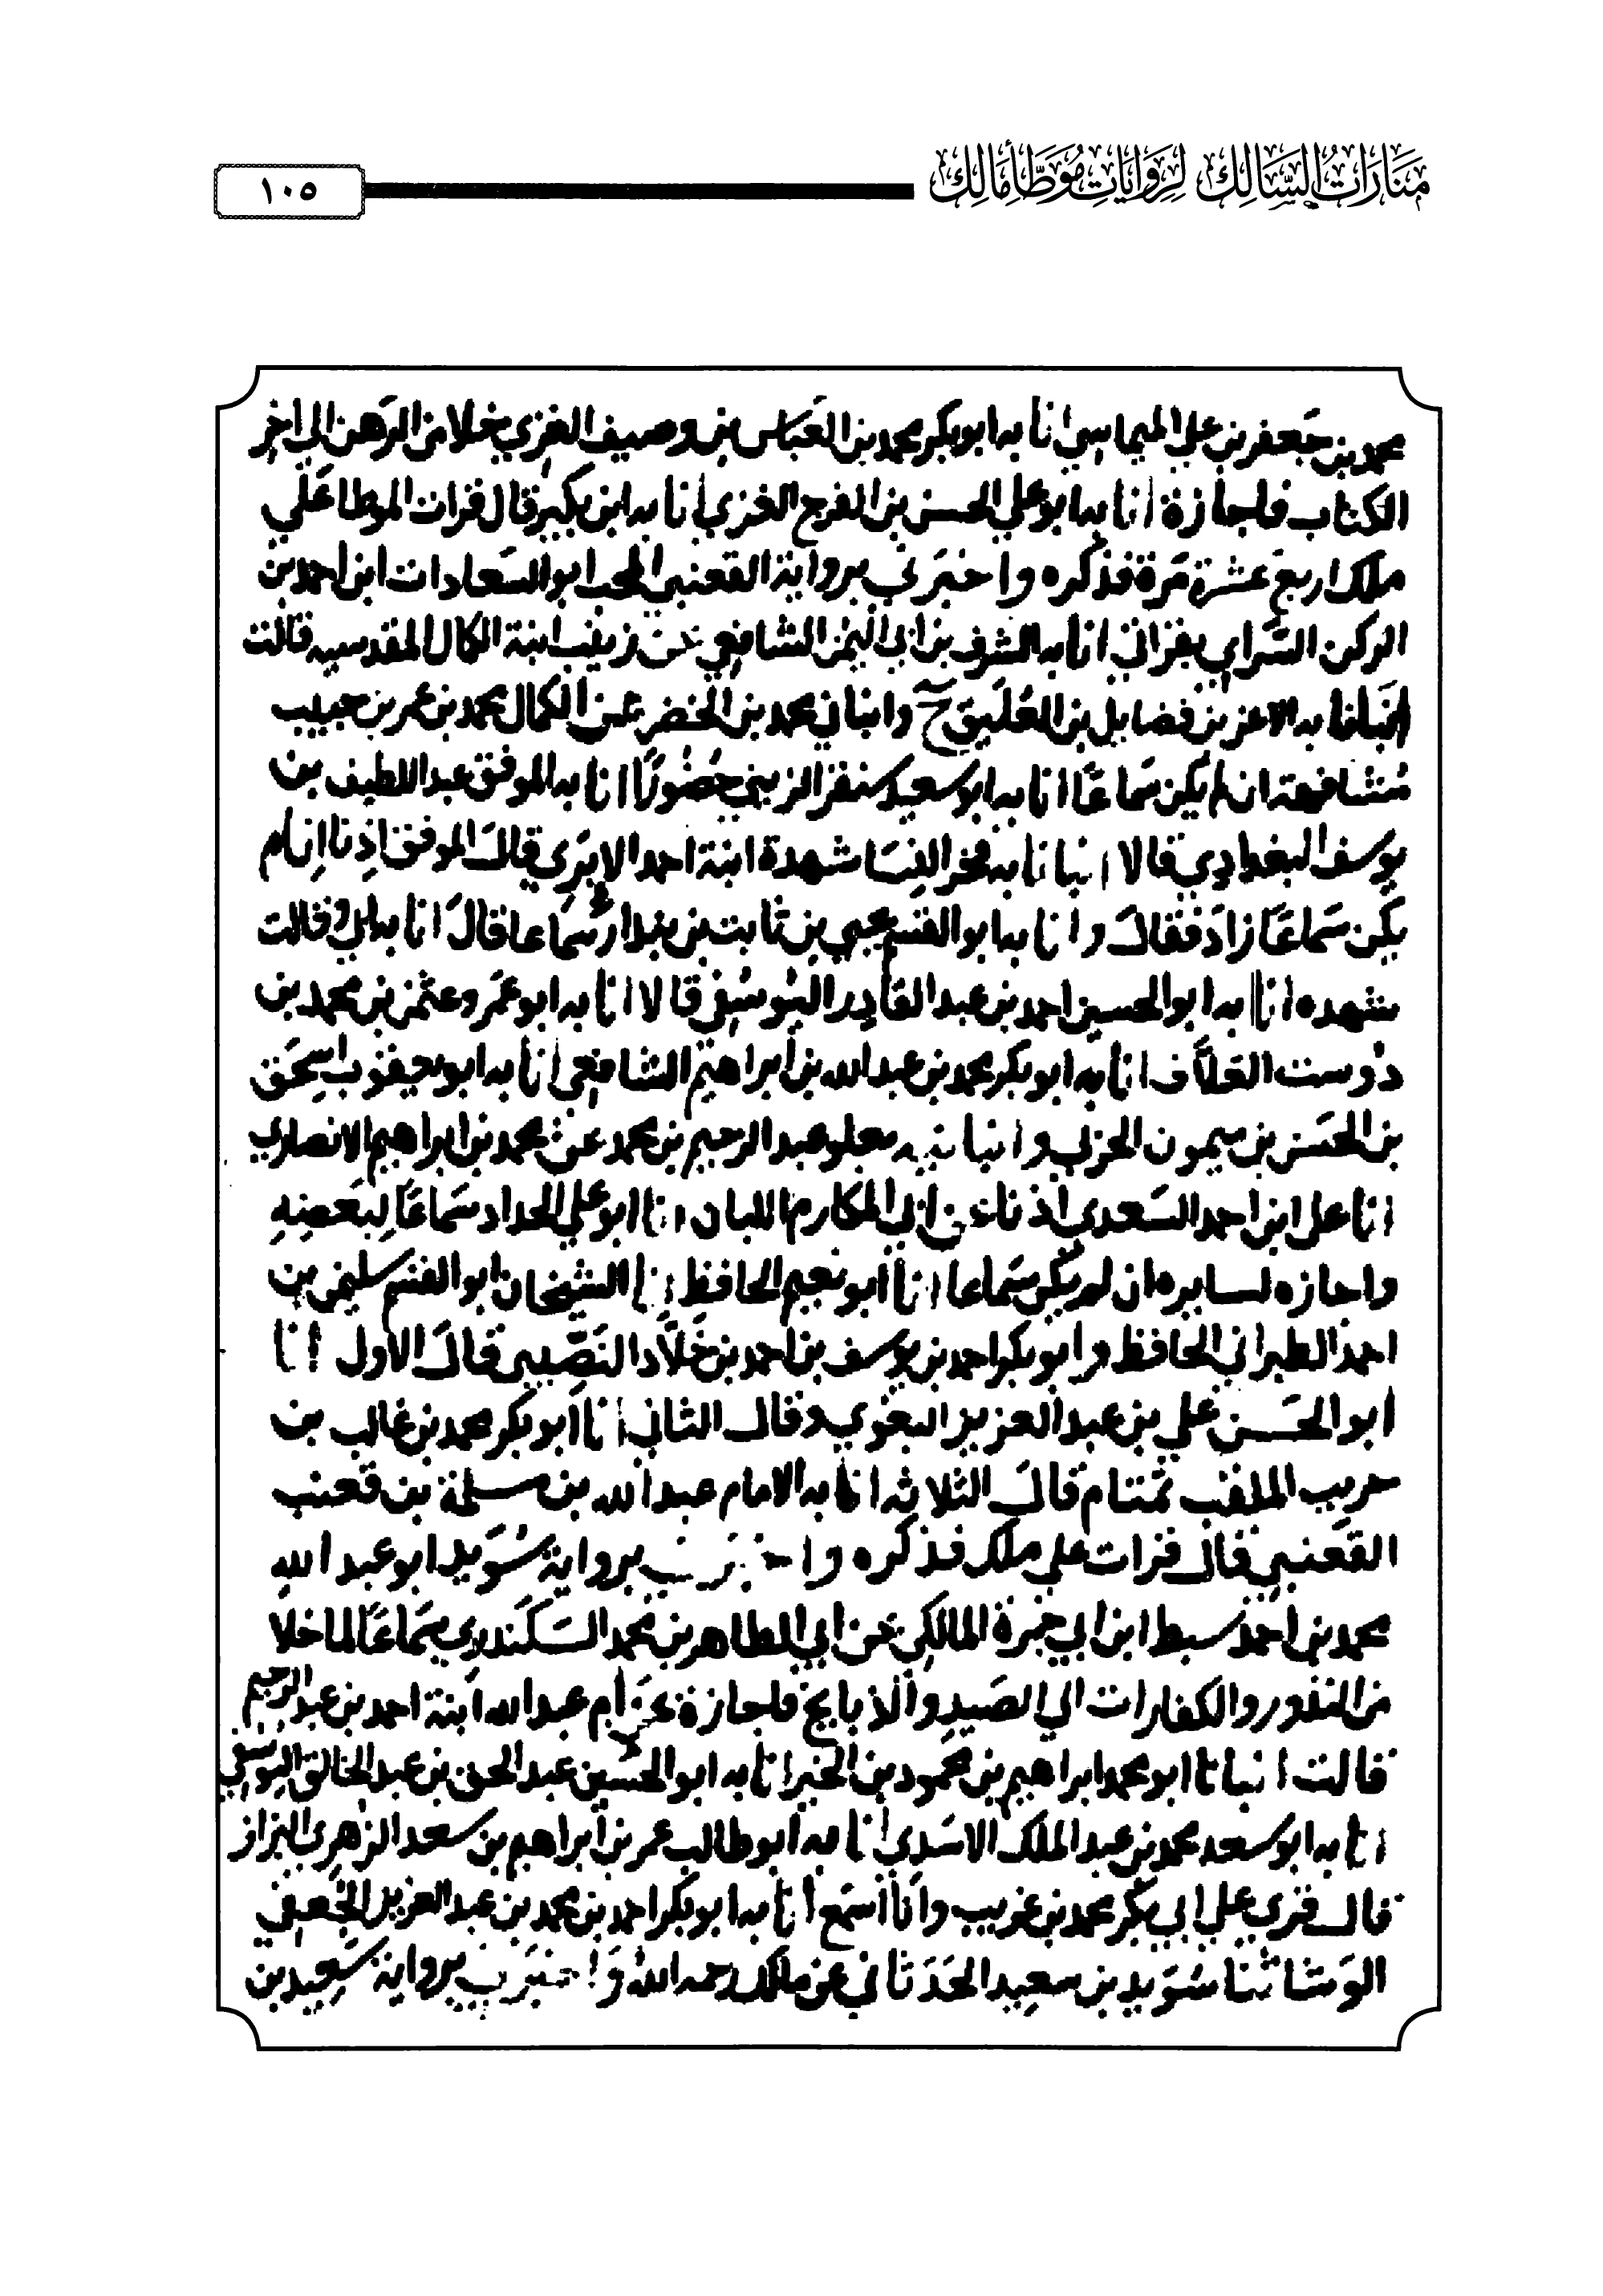 منارات السالك لروايات موطأ مالك
١٠٥
محمد بن جعفر بن علي الميماسي انا به ابو بكر محمد بن العباس بن وصيف الغزي خلا من الرهن الي اخر
الكتاب فاجازة انا به ابو علي الحسن بن الفرج الغزي انا به ابن بكير قال قرات الموطا علي
ملك اربع عشرة مرة فذكره واخبرني برواية القعنبي المحب ابو السعادات ابن احمد بن
الركن السراي بقراتي انا به الشرف بن ابي اليمن الشافعي عن زينب ابنة الكمال المقدسيه قالت
انبانا به الاعز بن فضايل بن العليق ح وانباني محمد بن الخضر عن الكمال محمد بن عمر بن حبيب
مشافهة ان لم يكن سماعا انا به ابو سعيد سنقر الزيني حضورا انا به الموفق عبد اللطيف بن
يوسف البغدادي قالا انبانا به فخر النسا شهدة ابنة احمد الابري قال الموفق اذنا ان لم
يكن سماعا زاد فقال وانا به ابو القسم يحيي بن ثابت بن بندار سماعا قال انا به ابي وقالت
شهده انا به ابو الحسين احمد بن عبد القادر اليوسفي قالا انا به ابو عمرو عثمن بن محمد بن
دوست العلاف انا به ابو بكر محمد بن عبد الله بن ابراهيم الشافعي انا به ابو يعقوب اسحق
بن الحسن بن ميمون الحربي وانبا به عبد الرحيم بن محمد عن محمد بن ابراهيم الانصاري
انا علي ابن احمد السعدي اذنا عن ابي المكارم اللبان انا ابو علي الحداد سماعا لبعضه
واجازه لسايره ان لم يكن سماعا انا ابو نعيم الحافظ انا الشيخان ابو القسم سليمن بن
احمد الطبراني الحافظ وابو بكر احمد بن يوسف بن احمد بن خلاد النصيبي قال الاول انا
ابو الحسن علي بن عبد العزيز البغوي وقال الثاني انا ابو بكر محمد بن غالب بن
حريب الملقب تمتام قال الثلاثه انا به الامام عبد الله بن مسلمة بن قعنب
القعنبي قال قرات علي ملك فذكره واخبرني برواية سويد ابو عبد الله
محمد بن احمد سبط ابن ابي جمرة المالكي عن ابي الطاهر بن محمد السكندري سماعا لما خلا
من النذور والكفارات الي الصيد والذبايح فاجازة عن ام عبد الله ابنة احمد بن عبد الرحيم
قالت انبانا ابو محمد ابراهيم بن محمود بن الخير انا به ابو الحسين عبد الحق بن عبد الخالق اليوسفي
انا به ابو سعد محمد بن عبد الملك الاسدي انا به ابو طالب عمر بن ابراهيم بن سعد الزهري البزاز
قال قري علي ابي بكر محمد بن غريب وانا اسمع انا به ابو بكر احمد بن محمد بن عبد العزيز الجعفي
الوشا ثنا سويد بن سعيد الحدثاني عن ملك رحمه الله واخبرني برواية سعيد بن